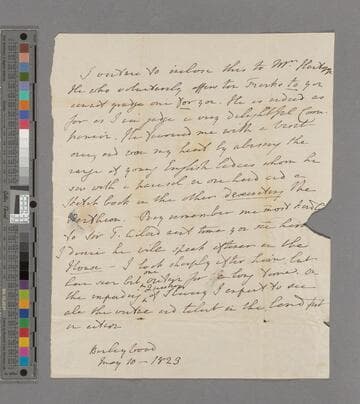 I venture to inclose this to Mr.
He who voluntarily offers ten Franks to you
cannot grudge one for you. He is indeed as
far as I can judge a very delightful Com-
panion. He favored me with a
once, and won my heart by abusing the
rage of young English Ladies whom he
saw with a parasol in one hand and a
Sketch book in the other desecrating the
Parthenon. Pray remember me most kindly
to Sir T. Acland next time you see him
I desire he will speak oftener in the
House - I look sharply after him but
have seen but one for a long time. On
the impending question of Slavery I expect to see
all the virtue and talent in the land put
in action
Barley Wood
May 10 - 1823